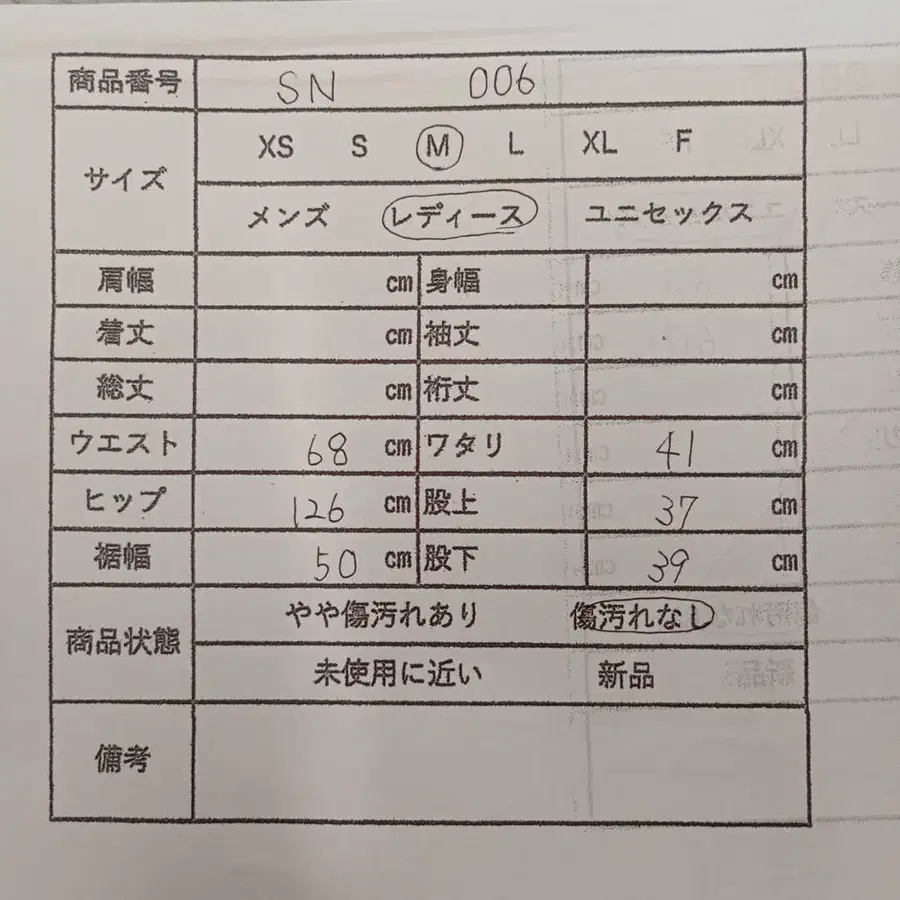 商品番号 SN 006
サイズ
XS S M L XL F
メンズ レディース ユニセックス
肩幅 cm 身幅 cm
着丈 cm 袖丈 cm
総丈 cm 裄丈 cm
ウエスト 68 cm ワタリ 41 cm
ヒップ 126 cm 股上 37 cm
裾幅 50 cm 股下 39 cm
商品状態
やや傷汚れあり 傷汚れなし
未使用に近い 新品
備考